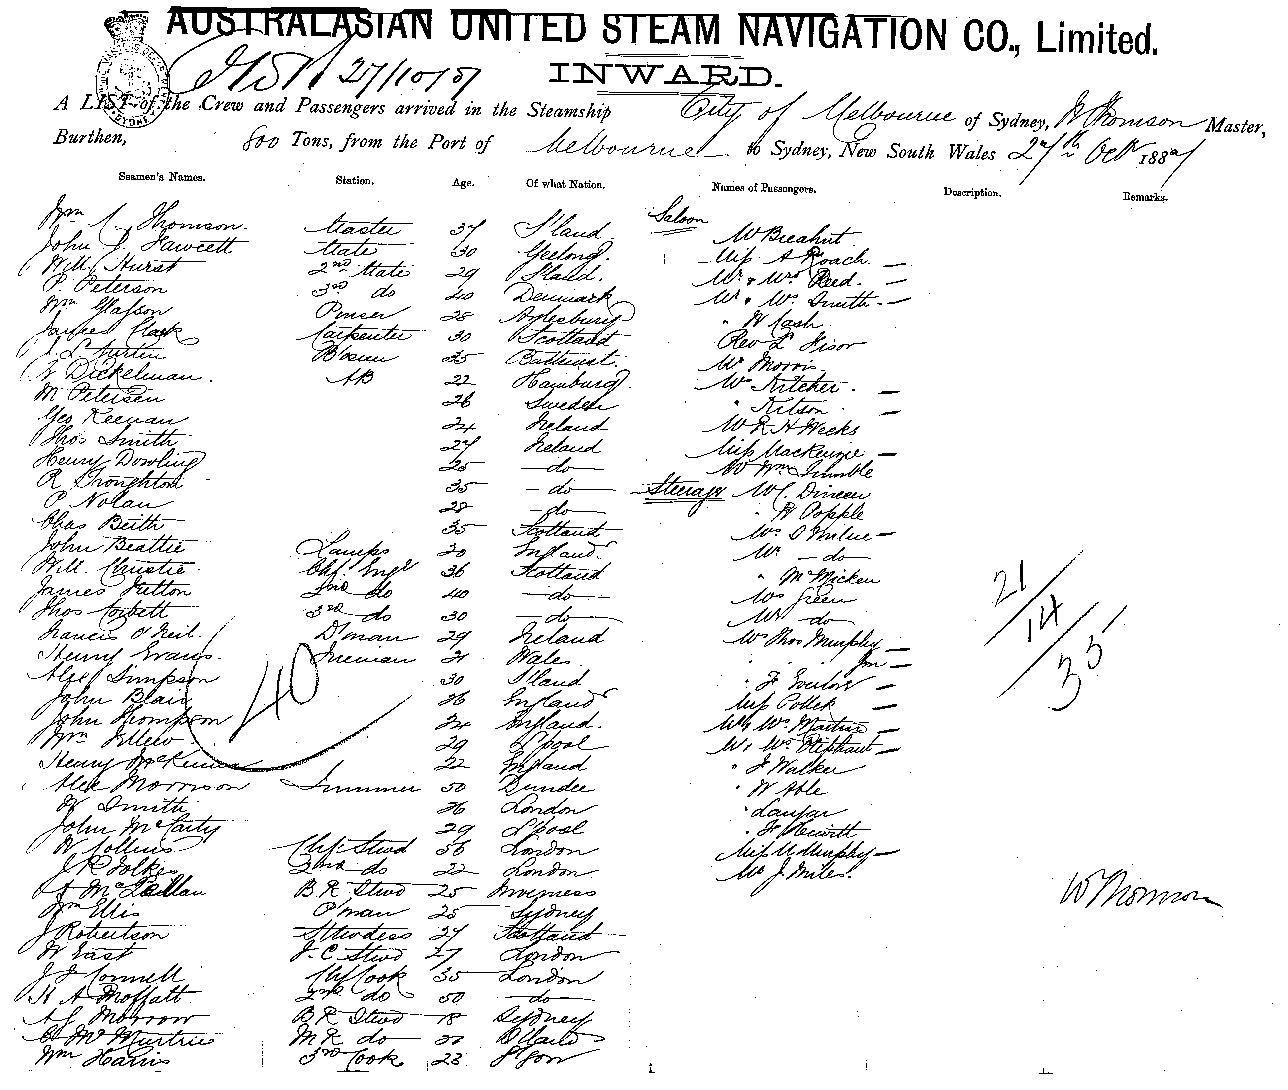 AUSTRALASIAN UNITED STEAM NAVIGATION CO., Limited.
27/10/87
INWARD.
A LIST of the Crew and Passengers arrived in the Steamship City of Melbourne of Sydney, W Thomson Master,
Burthen, 800 Tons, from the Port of Melbourne to Sydney, New South Wales 27th Octr 1887
Seamen's Names. Station. Age. Of what Nation. Names of Passengers. Description. Remarks.
Saloon
Wm Thomson Master 37 S'land
John J. Fawcett Mate 30 Geelong
Will Hurst 2nd Mate 29 S'land
P. Peterson 3rd do 40 Denmark
Wm Purser 28 Aylesbury
James Clark Carpenter 30 Scotland
Austin B'swn 35 Bathurst
Dickelman AB 22 Hamburg
M Petersen 26 Sweden
Geo Keenan 24 Ireland
Thos Smith 27 Ireland
Henry Dowling 25 do
R Troughton 35 do
P Nolan 28 do
Chas Beith 35 Scotland
John Beattie Lamps 20 England
Will. Christie Chf. Engr 36 Scotland
James Hutton 2nd do 40 do
Thos Corbett 3rd do 30 do
Francis O'Neil D'man 29 Ireland
Henry Evans Fireman 31 Wales
Alex Simpson 30 S'land
John Blair 26 England
John Thompson 24 England
Wm 29 L'pool
Henry 22 England
Alex Morrison Trimmer 50 Dundee
W Smith 26 London
John McCarty 29 L'pool
W Collins Chf. Stwd 36 London
J R Folkes 2nd do 22 London
B R Stwd 25 Inverness
Wm Ellis P'man 25 Sydney
J Robertson Stwdess 27 Scotland
W East F. C. Stwd 27 London
Connell Chf Cook 35 London
H A Moffatt 2nd do 50 do
A J Morrow B R Stwd 18 Sydney
McMurtrie M R do
Wm Harris 3rd Cook 23 G'gow
Mr
Miss A Roach
Mr & Mrs Reed
Mr & Mrs Smith
" W Cash
Rev L
Mr Morris
Mr Kitcher
" Kitson
Mr R H Weeks
Miss Mackenzie
Mr Wm Trimble
Steerage Mr C. Duncan
" H Popple
Mrs Milne
Mr do
" McMicken
Mrs Green
Mr do
Mr Thos Murphy
" " Jnr
" F
Miss Pollek
Mr & Mrs Martin
Mr & Mrs Oliphant
" J Walker
" W Able
"
" Hewitt
Miss Murphy
Mr J. Miles
40
21/
14/
35
W Thomson